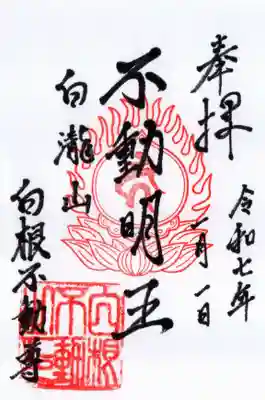 奉拝
令和七年
一月一日
不動明王
白瀧山
白根不動尊
白根
不動